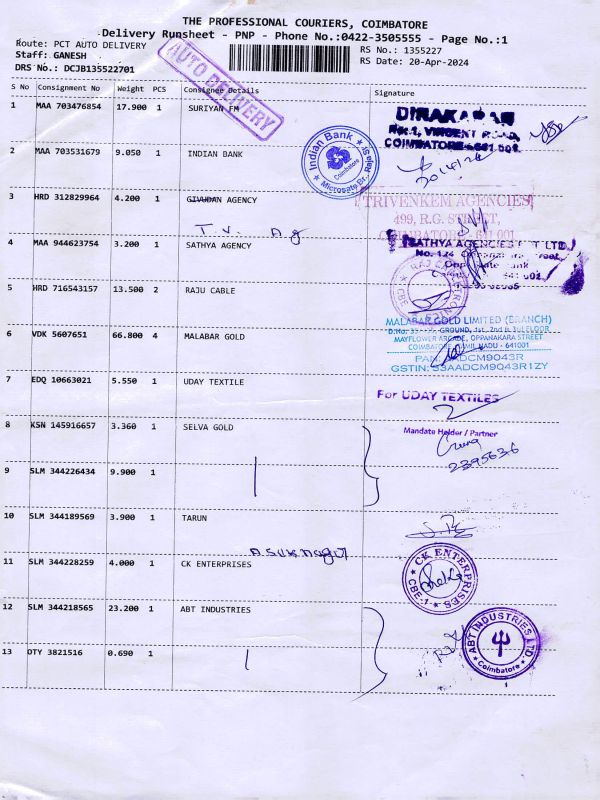 THE PROFESSIONAL COURIERS, COIMBATORE
Delivery Runsheet - PNP - Phone No.:0422-3505555 - Page No.:1
Route: PCT AUTO DELIVERY
RS No.: 1355227
Staff: GANESH
RS Date: 20-Apr-2024
DRS No.: DCJB135522701
AUTO DELIVERY
S No Consignment No Weight PCS Consignee Details Signature
1 MAA 703476854 17.900 1 SURIYAN FM
COIMBATORE-641 001
2 MAA 703531679 9.050 1 INDIAN BANK
Indian Bank
Coimbatore
3 HRD 312829964 4.200 1 GIVUDAN AGENCY
T. V. Ag
TRIVENKEM AGENCIES
499, R.G. STREET,
COIMBATORE-641 001
4 MAA 944623754 3.200 1 SATHYA AGENCY
SATHYA AGENCIES PVT LTD.
No. 124
5 HRD 716543157 13.500 2 RAJU CABLE
6 VDK 5607651 66.800 4 MALABAR GOLD
MALABAR GOLD LIMITED (BRANCH)
GROUND, 1st, 2nd & 3rd FLOOR
MAYFLOWER ARCADE, OPPANAKARA STREET
COIMBATORE, TAMIL NADU - 641001
GSTIN: 33AADCM9043R1ZY
7 EDQ 10663021 5.550 1 UDAY TEXTILE
For UDAY TEXTILES
8 KSN 145916657 3.360 1 SELVA GOLD
Mandate Holder / Partner
2395636
9 SLM 344226434 9.900 1
10 SLM 344189569 3.900 1 TARUN
11 SLM 344228259 4.000 1 CK ENTERPRISES
CK ENTERPRISES
CBE-1
12 SLM 344218565 23.200 1 ABT INDUSTRIES
ABT INDUSTRIES LTD
Coimbatore
13 OTY 3821516 0.690 1